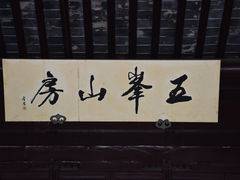 五峯山房